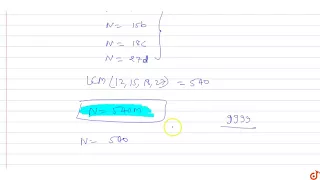 N = 15b
N = 18c
N = 27d
LCM (12, 15, 18, 27) = 540
N = 540M
9999
N = 540